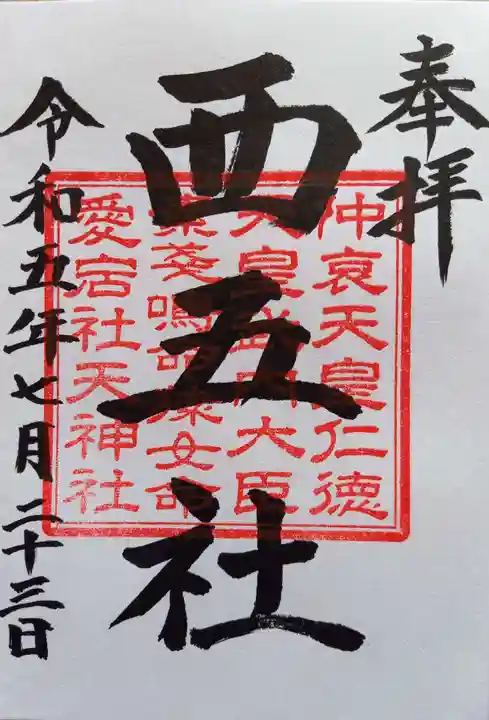 奉拝
西五社
仲哀天皇仁徳
天皇武内大臣
葉鳴命
愛宕社天神社
令和五年七月二十三日